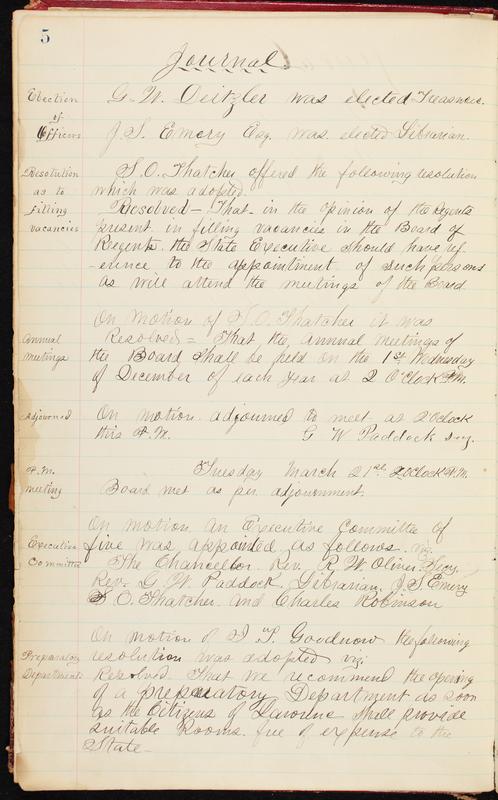 5
Journal
Election of Officers
G. W. Deitzler was elected Treasurer.
J. S. Emery Esq. was elected Librarian.
Resolution as to filling vacancies
S. O. Thatcher offered the following resolution
which was adopted.
Resolved – That in the opinion of the Regents
present in filling vacancies in the Board of
Regents the State Executive should have ref-
-erence to the appointment of such persons
as will attend the meetings of the Board.
On motion of S. O. Thatcher it was
Annual meetings
Resolved – That the annual meetings of
the Board shall be held on the 1st Wednesday
of December of each year at 2 O'clock P.M.
Adjourned
On motion adjourned to meet at 2 O'clock
this P.M. G W Paddock Secy.
P.M. meeting
Tuesday March 21st 2 O'clock P.M.
Board met as per adjournment.
Executive Committee
On motion an Executive Committee of
five was appointed as follows. viz.
The Chancellor. Rev. R. W. Oliver. Secy.
Rev. G. W. Paddock. Librarian, J. S. Emery
S. O. Thatcher and Charles Robinson
On motion of I. T. Goodnow the following
Preparatory Department
resolution was adopted viz:
Resolved. That we recommend the opening
of a preparatory Department as soon
as the Citizens of Lawrence shall provide
suitable Rooms. free of expense to the
State –